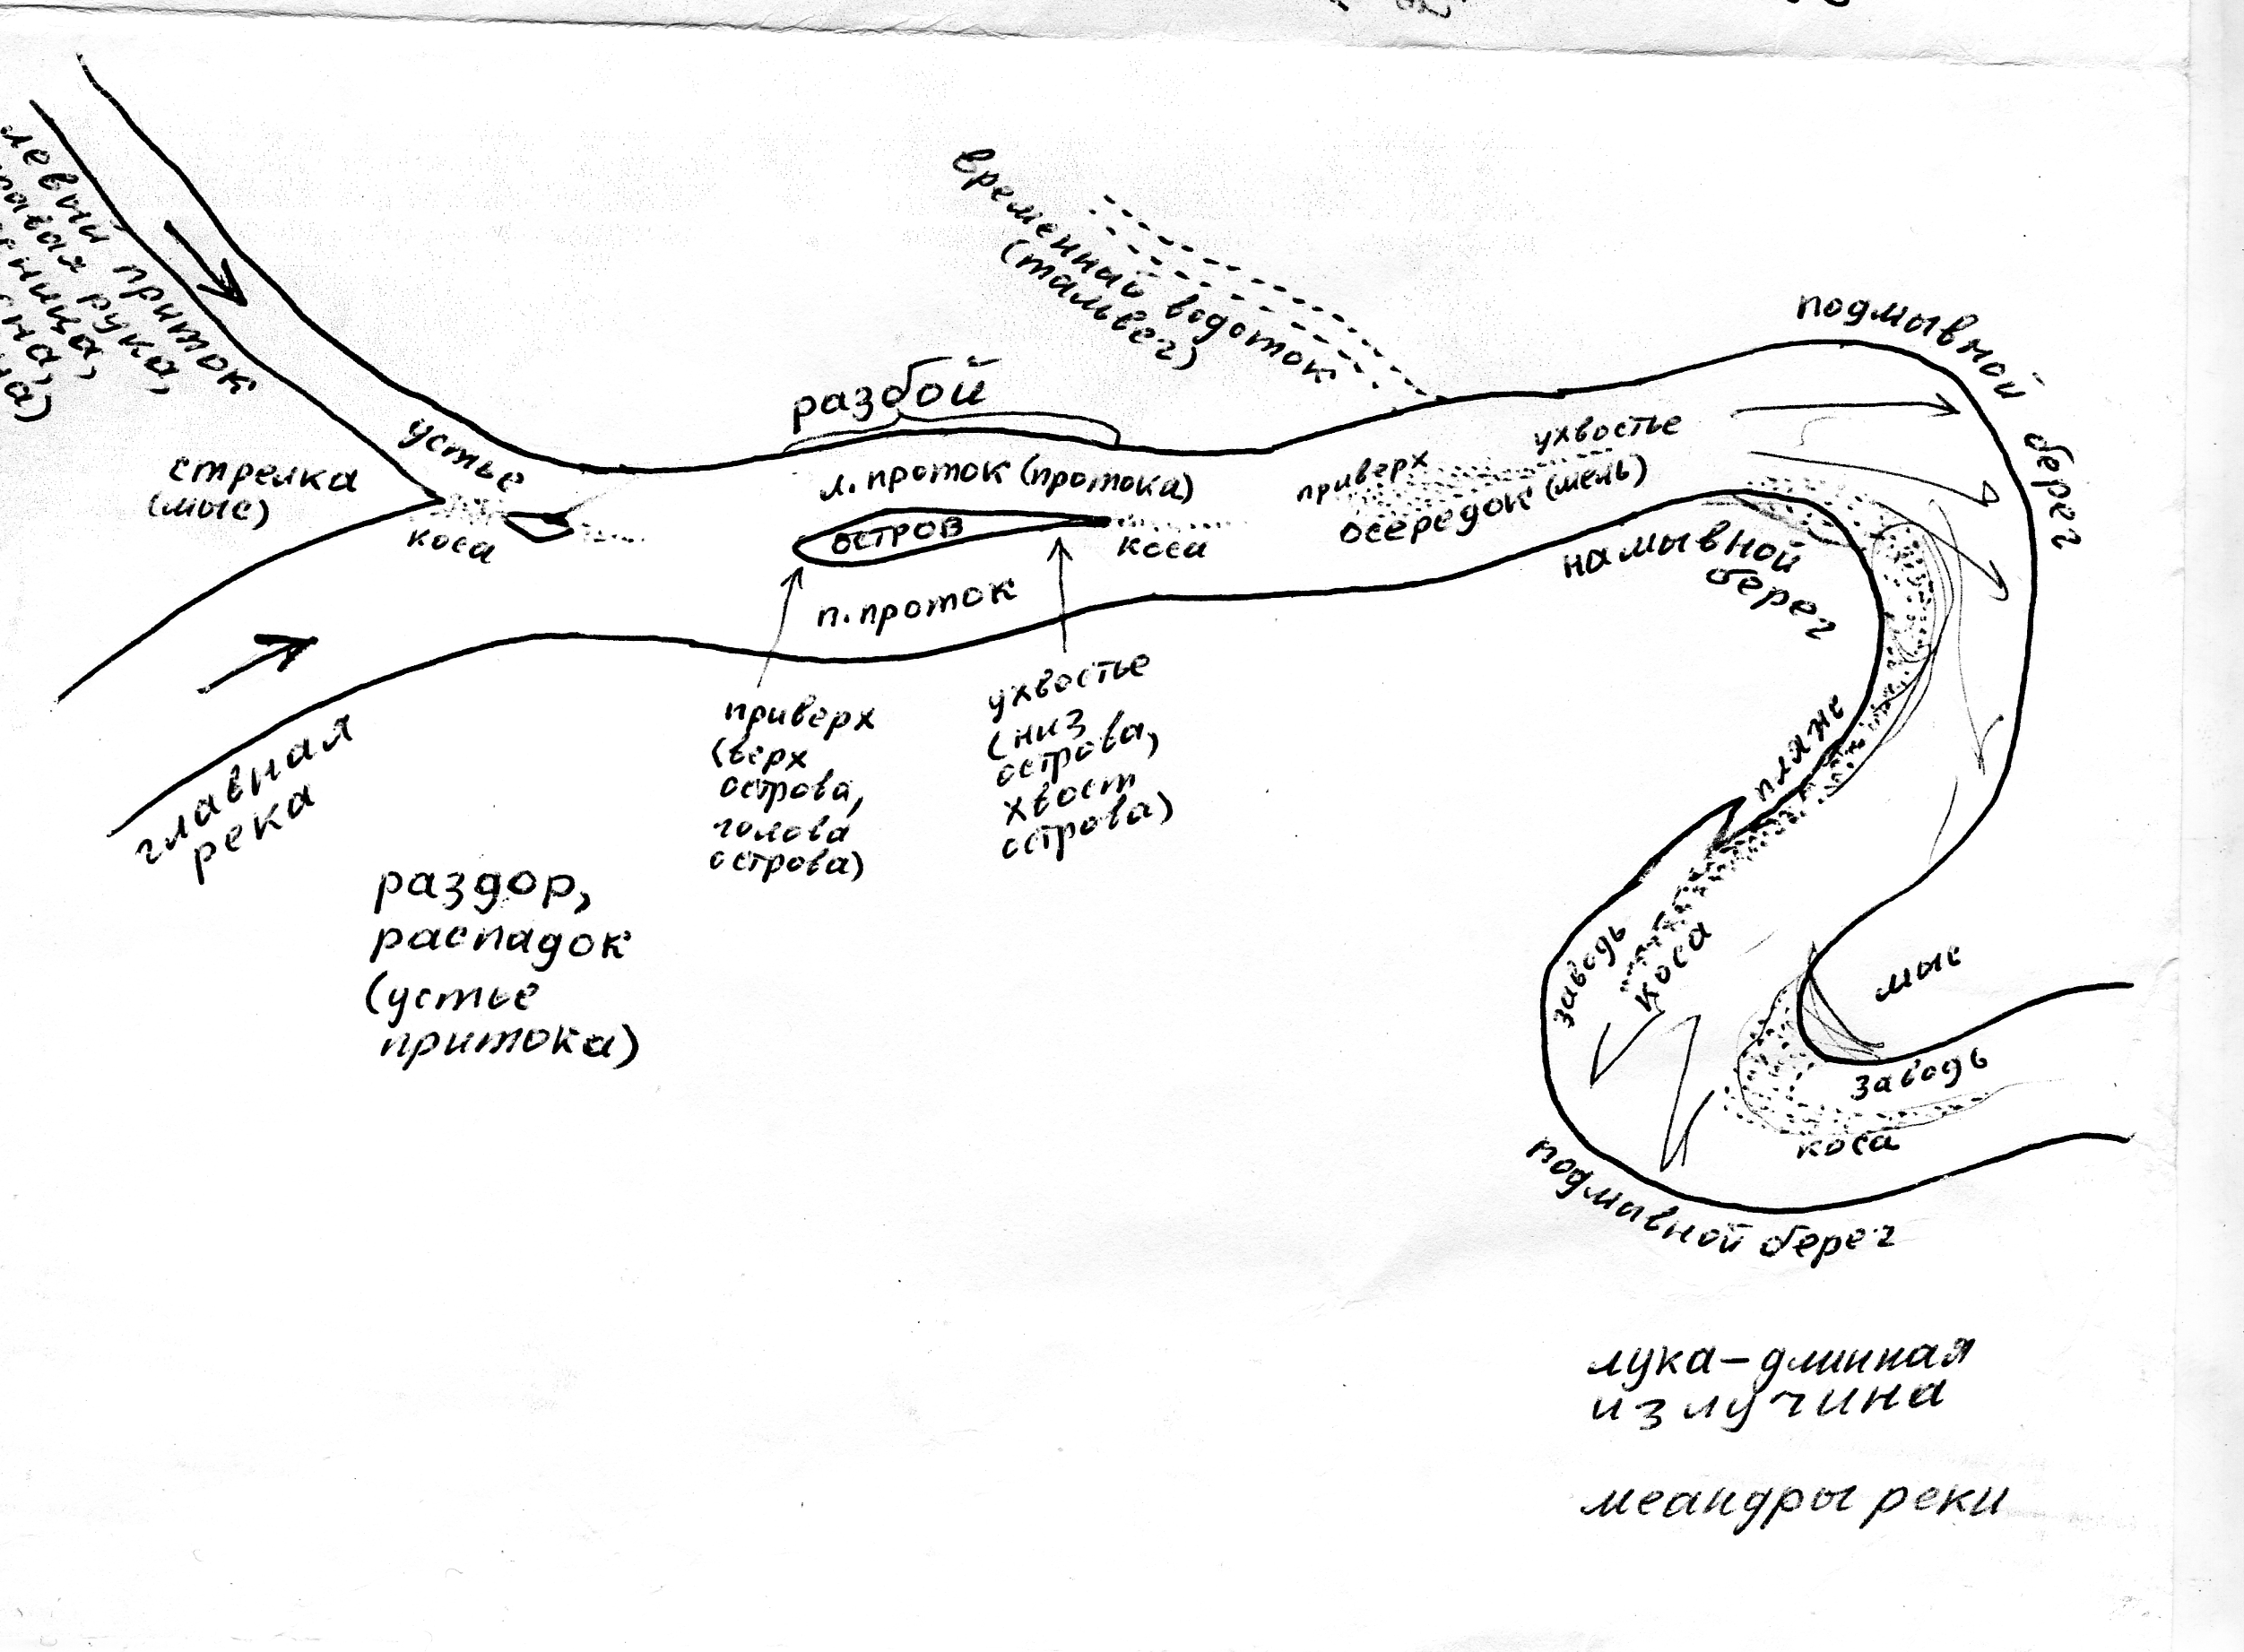 левый приток
правая рука,
стрелка
(мыс)
устье
коса
главная
река
раздор,
распадок
(устье
притока)
разбой
л. проток (протока)
остров
коса
п. проток
приверх
(верх
острова,
голова
острова)
ухвостье
(низ
острова,
хвост
острова)
временный водоток
(тальвег)
приверх
ухвостье
осередок (мель)
подмывной берег
намывной
берег
пляж
заводь
коса
мыс
заводь
коса
подмывной берег
лука-длинная
излучина
меандры реки